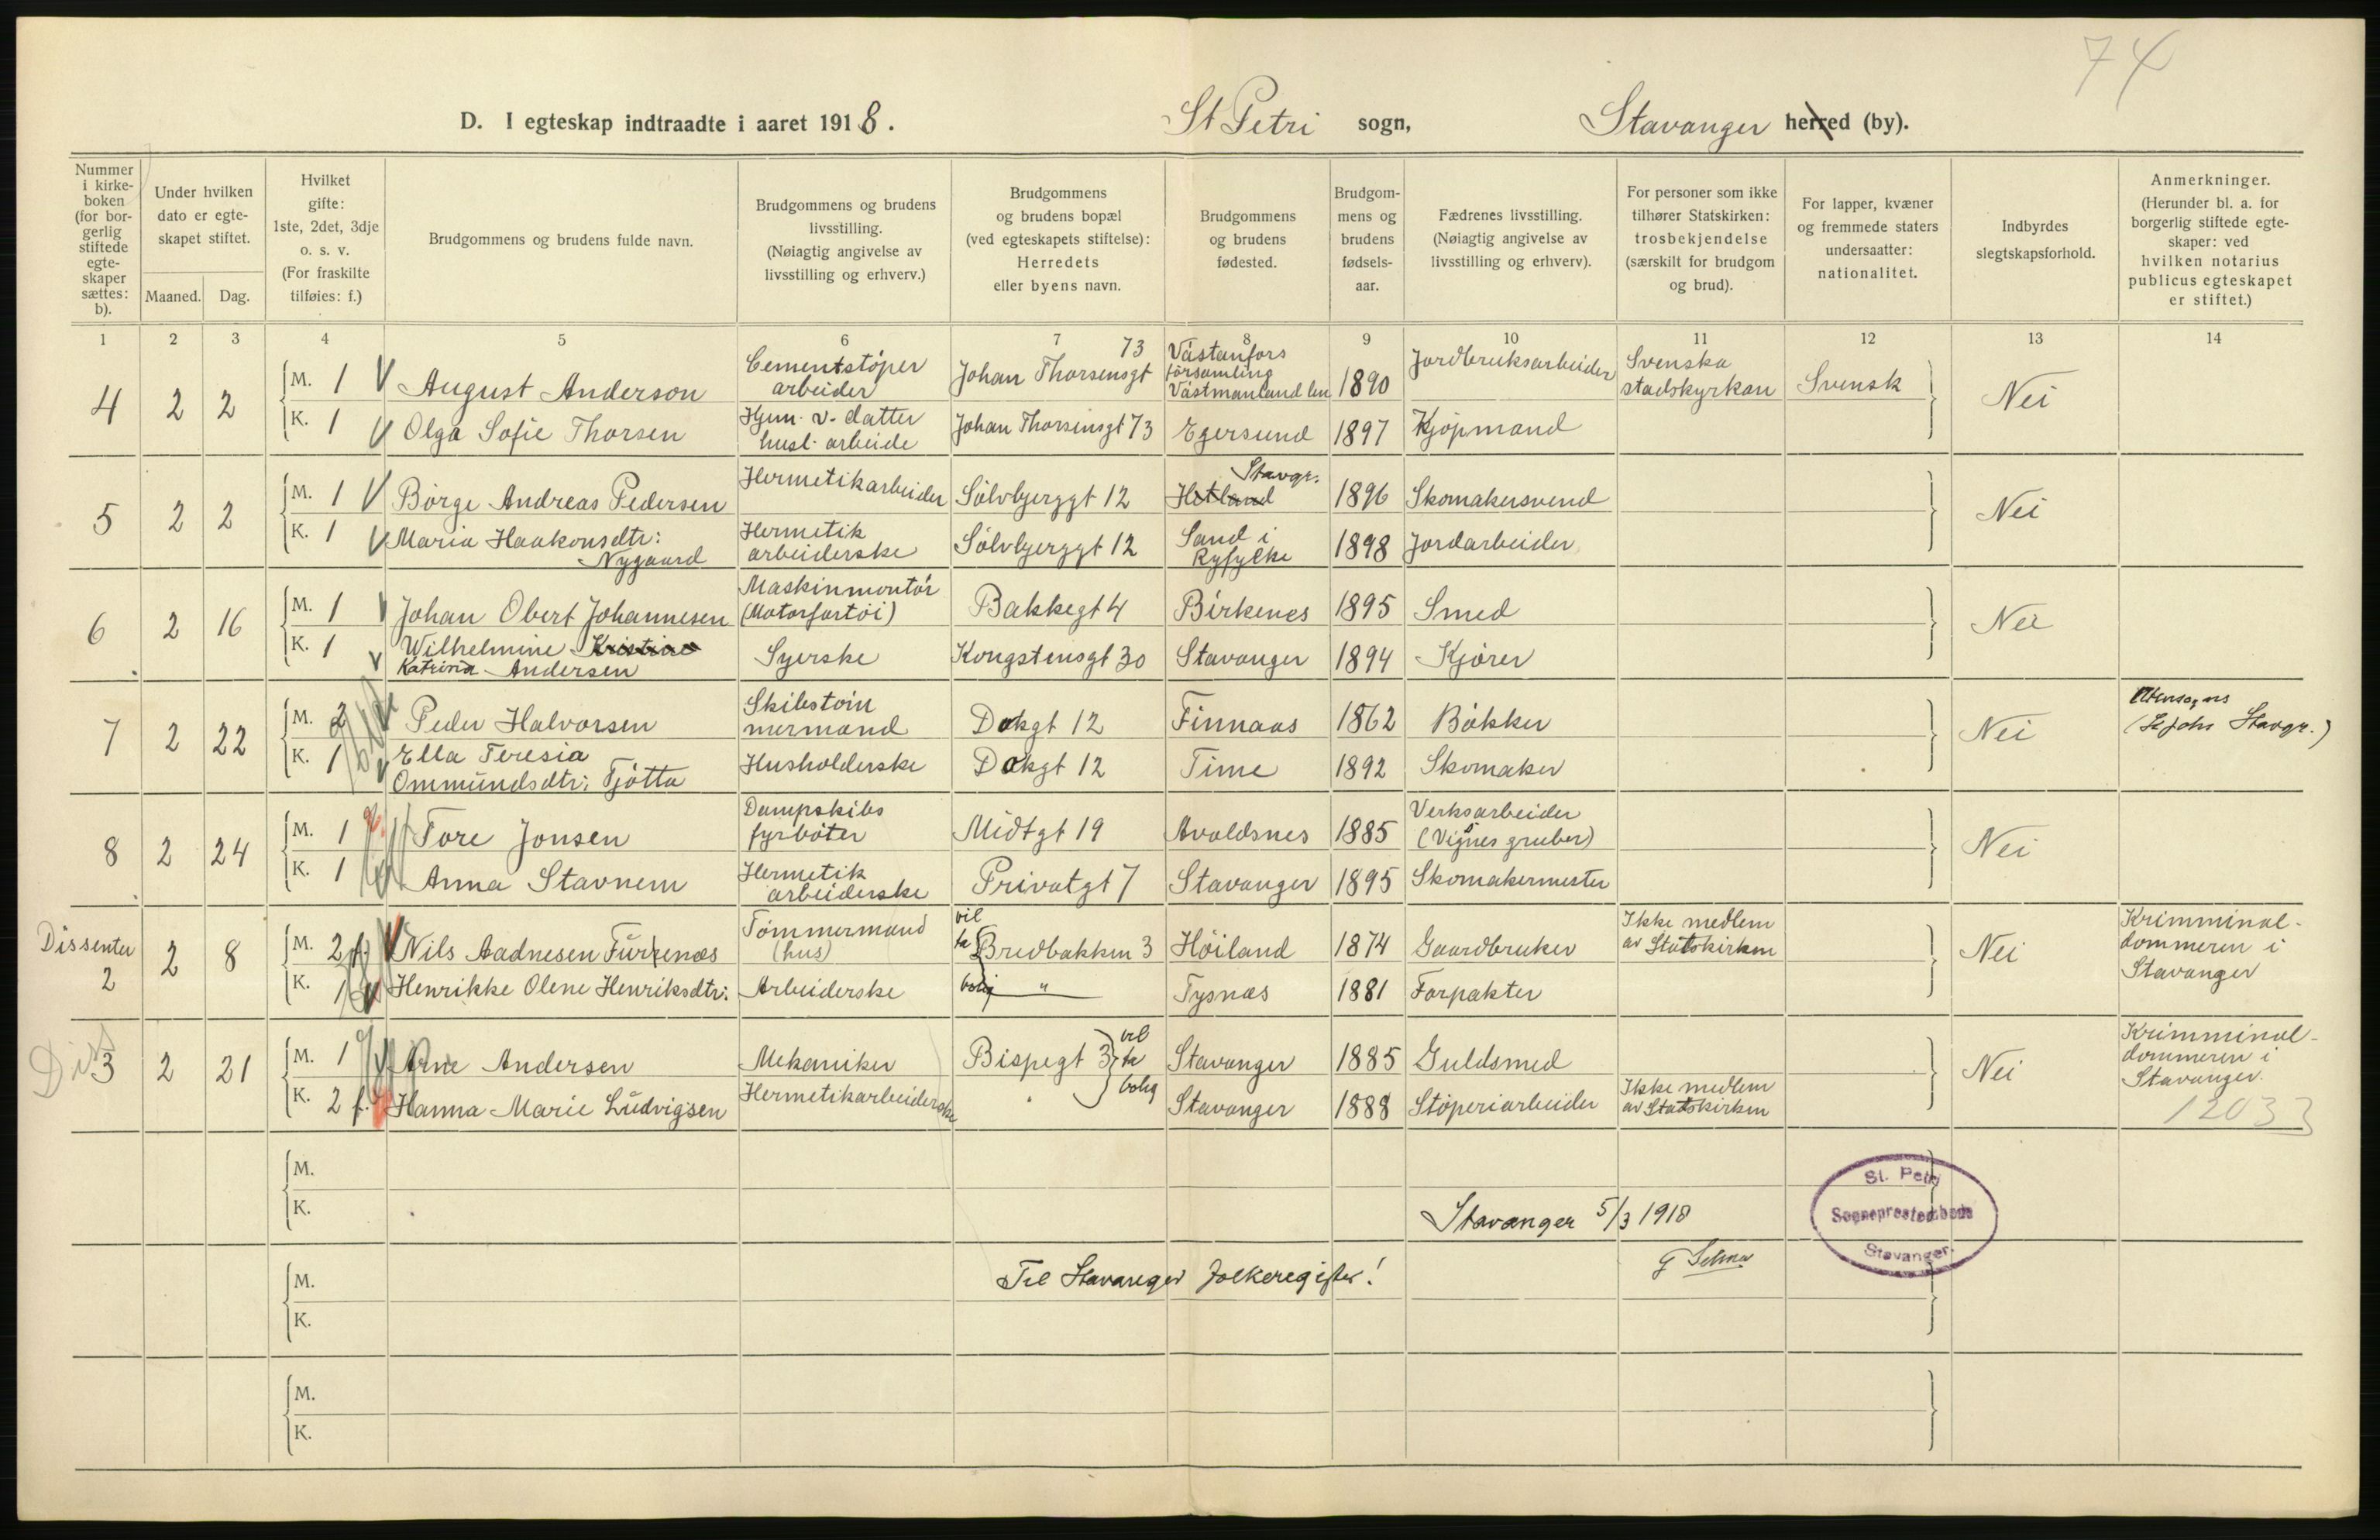 74
D. I egteskap indtraadte i aaret 1918. St Petri sogn, Stavanger herred (by).
Nummer i kirke-boken (for bor-gerlig stiftede egte-skaper sættes: b).
Under hvilken dato er egte-skapet stiftet.
Maaned. Dag.
Hvilket gifte: 1ste, 2det, 3dje o. s. v. (For fraskilte tilføies: f.)
Brudgommens og brudens fulde navn.
Brudgommens og brudens livsstilling. (Nøiagtig angivelse av livsstilling og erhverv.)
Brudgommens og brudens bopæl (ved egteskapets stiftelse): Herredets eller byens navn.
Brudgommens og brudens fødested.
Brudgom-mens og brudens fødsels-aar.
Fædrenes livsstilling. (Nøiagtig angivelse av livsstilling og erhverv).
For personer som ikke tilhører Statskirken: trosbekjendelse (særskilt for brudgom og brud).
For lapper, kvæner og fremmede staters undersaatter: nationalitet.
Indbyrdes slegtskapsforhold.
Anmerkninger. (Herunder bl. a. for borgerlig stiftede egte-skaper: ved hvilken notarius publicus egteskapet er stiftet.)
1 2 3 4 5 6 7 8 9 10 11 12 13 14
4 2 2 M. 1 August Anderson Cementstöper arbeider Johan Thorsensgt 73 Västanfors församling Västmanland len 1890 Jordbruksarbeider Svenska stadskyrkan Svensk Nei
K. 1 Olga Sofie Thorsen Hjem. v. datter husl. arbeide Johan Thorsensgt 73 Egersund 1897 Kjøpmand
5 2 2 M. 1 Børge Andreas Pedersen Hermetikarbeider Sølvbjerggt 12 Hetland Stavgr. 1896 Skomakersvend Nei
K. 1 Maria Haakonsdtr: Nygaard Hermetik arbeiderske Sølvbjerggt 12 Sand i Ryfylke 1898 Jordarbeider
6 2 16 M. 1 Johan Obert Johannesen Maskinmontør (Motorfartøi) Bakkegt 4 Birkenes 1895 Smed Nei
K. 1 Wilhelmine Kristine Katrina Andersen Syerske Kongstensgt 30 Stavanger 1894 Kjører
7 2 22 M. 2 Peder Halvorsen Skibstøm mermand Dokgt 12 Finnaas 1862 Bøkker Nei Utensogns (St Johs Stavgr.)
K. 1 Ella Teresia Ommundsdtr: Tjøtta Husholderske Dokgt 12 Time 1892 Skomaker
8 2 24 M. 1 Tore Jonsen Dampskibs fyrbøter Midtgt 19 Avaldsnes 1885 Verksarbeider (Vigsnes gruber) Nei
K. 1 Anna Stavnem Hermetik arbeiderske Privatgt 7 Stavanger 1895 Skomakermester
Dissenter 2 2 8 M. 2 f. Nils Aadnesen Furrenæs Tømmermand (hus) vil ta Bredbakken 3 Høiland 1874 Gaardbruker Ikke medlem av Statskirken Nei Krimminal-dommeren i Stavanger
K. 1 Henrikke Olene Henriksdtr: Arbeiderske bolig " Tysnæs 1881 Forpakter
Dis 3 2 21 M. 1 Arne Andersen Mekaniker Bispegt 3 vil ta bolig Stavanger 1885 Guldsmed Nei Krimminal-dommeren i Stavanger.
K. 2 f. Hanna Marie Ludvigsen Hermetikarbeiderske " Stavanger 1888 Støperiarbeider Ikke medlem av Statskirken
12033
M.
K.
Stavanger 5/3 1918
St. Petri
Sogneprestembede
Stavanger.
M.
Til Stavanger Folkeregister!
K.
M.
K.